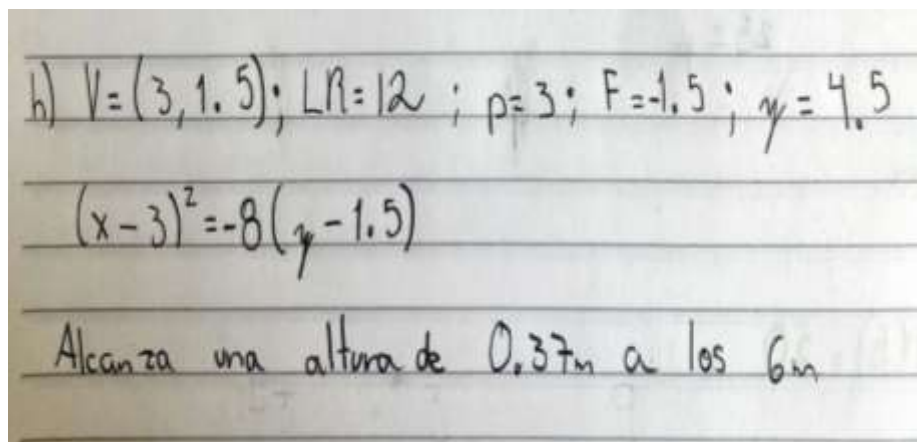 h) V=(3,1.5); LR=12 ; p=3; F=-1.5; y=4.5
(x-3)²=-8(y-1.5)
Alcanza una altura de 0.37m a los 6m